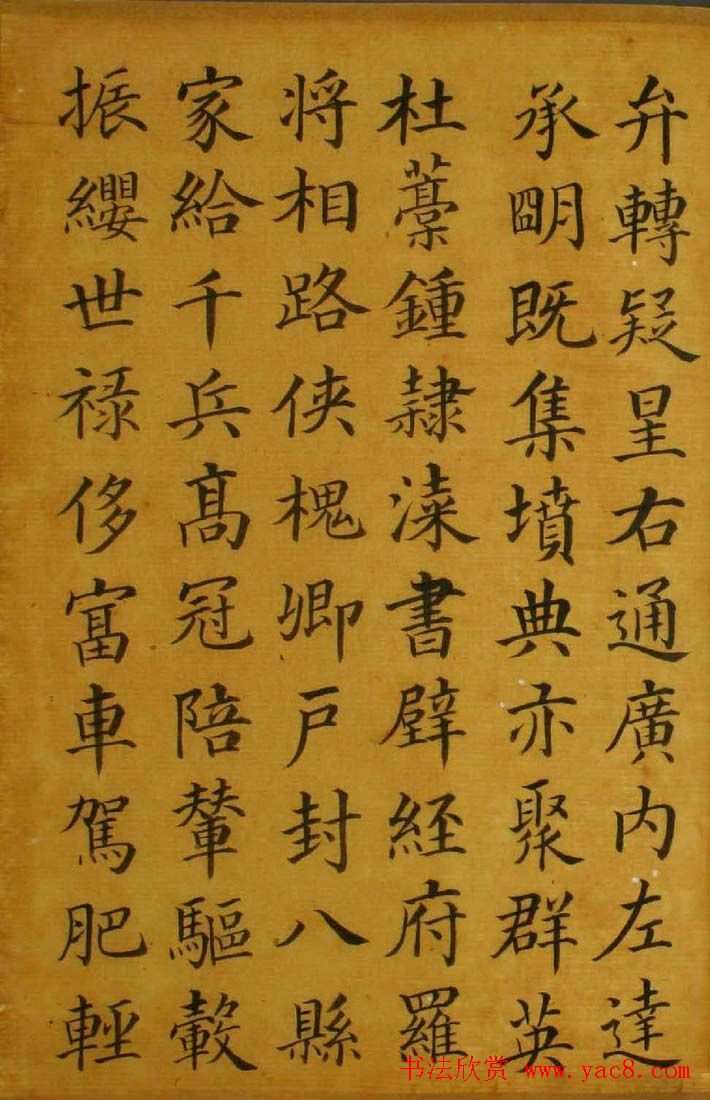 弁轉疑星右通廣内左達
承明既集墳典亦聚群英
杜藁鍾隸漆書壁経府羅
将相路侠槐卿户封八縣
家給千兵高冠陪輦驅轂
振纓世禄侈富車駕肥輕
书法欣赏 www.yac8.com